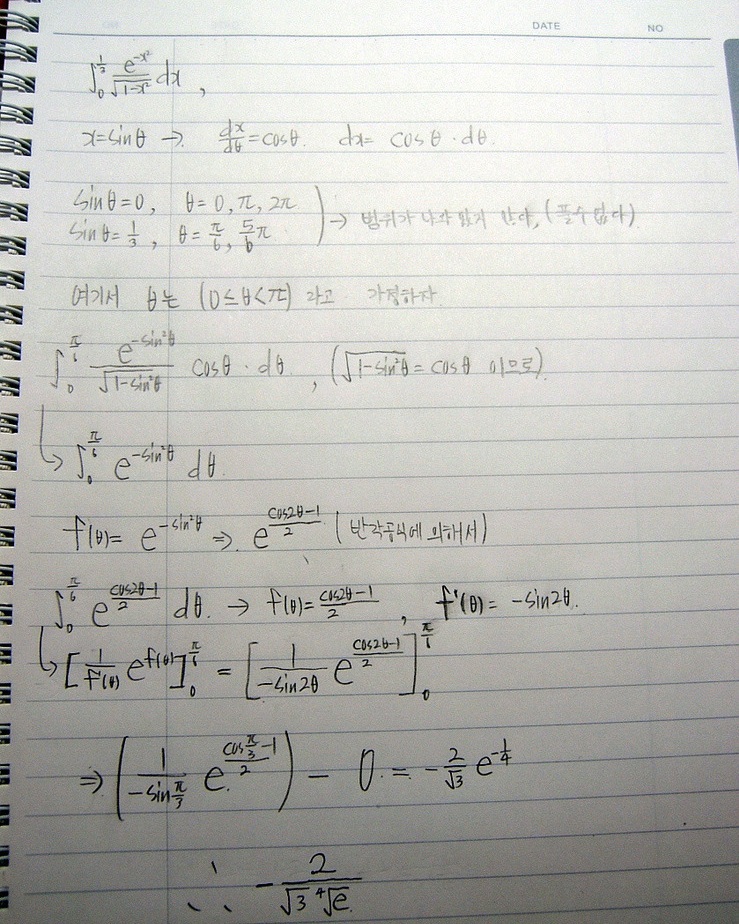 DATE NO
∫₀^{1/2} e^{-x²}/√(1-x²) dx ,
x=sinθ → dx/dθ=cosθ. dx= cosθ·dθ.
sinθ=0, θ=0, π, 2π
sinθ=1/3, θ=π/6, 5/6π
→ 범위가 나와 있지 않다, (풀수 없다)
여기서 θ는 (0≤θ<π) 라고 가정하자.
∫₀^{π/6} e^{-sin²θ}/√(1-sin²θ) cosθ·dθ , (√(1-sin²θ)=cosθ 이므로)
↳ ∫₀^{π/6} e^{-sin²θ} dθ.
f(θ)= e^{-sin²θ} ⇒ e^{(cos2θ-1)/2} (반각공식에 의해서)
∫₀^{π/6} e^{(cos2θ-1)/2} dθ. → f(θ)=(cos2θ-1)/2 , f'(θ)= -sin2θ.
↳ [1/f'(θ) e^{f(θ)}]₀^{π/6} = [1/(-sin2θ) e^{(cos2θ-1)/2}]₀^{π/6}
⇒ (1/(-sin π/3) e^{(cos π/3 -1)/2}) - 0 = -2/√3 e^{-1/4}
∴ -2/(√3 ⁴√e)